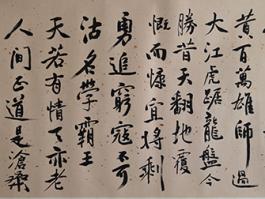 黃百萬雄師過
大江虎踞龍盤今
勝昔天翻地覆
慨而慷宜將剩
勇追窮寇不可
沽名學霸王
天若有情天亦老
人间正道是滄桑